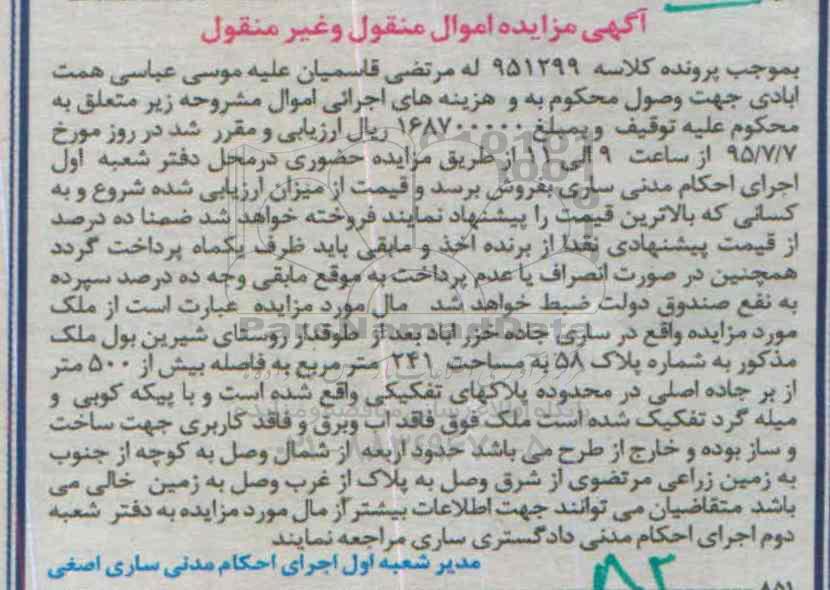 آگهی مزایده اموال منقول وغیر منقول
بموجب پرونده کلاسه ۹۵۱۲۹۹ له مرتضی قاسمیان علیه موسی عباسی همت
ابادی جهت وصول محکوم به و هزینه های اجرائی اموال مشروحه زیر متعلق به
محکوم علیه توقیف وبمبلغ ۱۶۸۷۰۰۰۰۰ ریال ارزیابی و مقرر شد در روز مورخ
۹۵/۷/۷ از ساعت ۹ الی ۱۱ از طریق مزایده حضوری درمحل دفتر شعبه اول
اجرای احکام مدنی ساری بفروش برسد و قیمت از میزان ارزیابی شده شروع و به
کسانی که بالاترین قیمت را پیشنهاد نمایند فروخته خواهد شد ضمنا ده درصد
از قیمت پیشنهادی نقدا از برنده اخذ و مابقی باید ظرف یکماه پرداخت گردد
همچنین در صورت انصراف یا عدم پرداخت به موقع مابقی وجه ده درصد سپرده
به نفع صندوق دولت ضبط خواهد شد مال مورد مزایده عبارت است از ملک
مورد مزایده واقع در ساری جاده خزر اباد بعد از طوقدار روستای شیرین بول ملک
مذکور به شماره پلاک ۵۸ به مساحت ۲۴۱ متر مربع به فاصله بیش از ۵۰۰ متر
از بر جاده اصلی در محدوده پلاکهای تفکیکی واقع شده است و با پیکه کوبی و
میله گرد تفکیک شده است ملک فوق فاقد اب وبرق و فاقد کاربری جهت ساخت
و ساز بوده و خارج از طرح می باشد حدود اربعه از شمال وصل به کوچه از جنوب
به زمین زراعی مرتضوی از شرق وصل به پلاک از غرب وصل به زمین خالی می
باشد متقاضیان می توانند جهت اطلاعات بیشتر از مال مورد مزایده به دفتر شعبه
دوم اجرای احکام مدنی دادگستری ساری مراجعه نمایند
مدیر شعبه اول اجرای احکام مدنی ساری اصغی
۸۵۱
۸۲
ParsNamadData